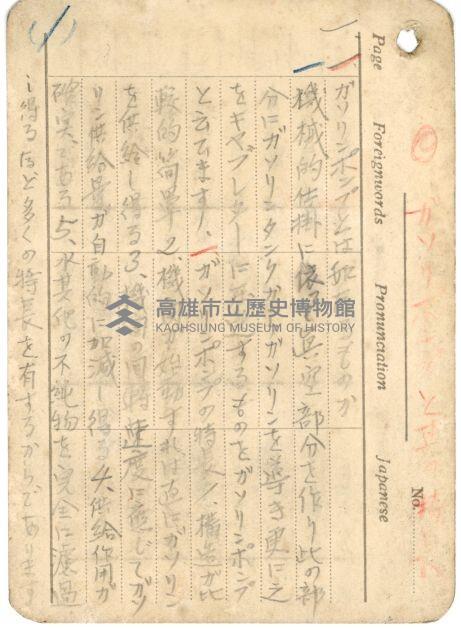 Page Foreignwords Pronunciation Japanese
No.
(1)
一、ガソリンポンプとは如何なるものか
機械的仕掛に依って真空部分を作り此の部
分にガソリンタンクからガソリンを導き更に之
をキャブレターに
するものをガソリンポンプ
と云ひます、一ガソリンポンプの特長 1、構造が比
較的簡単 2、機関が始動すれば直にガソリン
を供給し得る 3、機関の回転速度に応じてガソ
リン供給量が自動的に加減し得る 4、供給作用が
確実である 5、水其他の不純物を完全に濾過
し得るなど多くの特長を有するからであります
高雄市立歷史博物館
KAOHSIUNG MUSEUM OF HISTORY